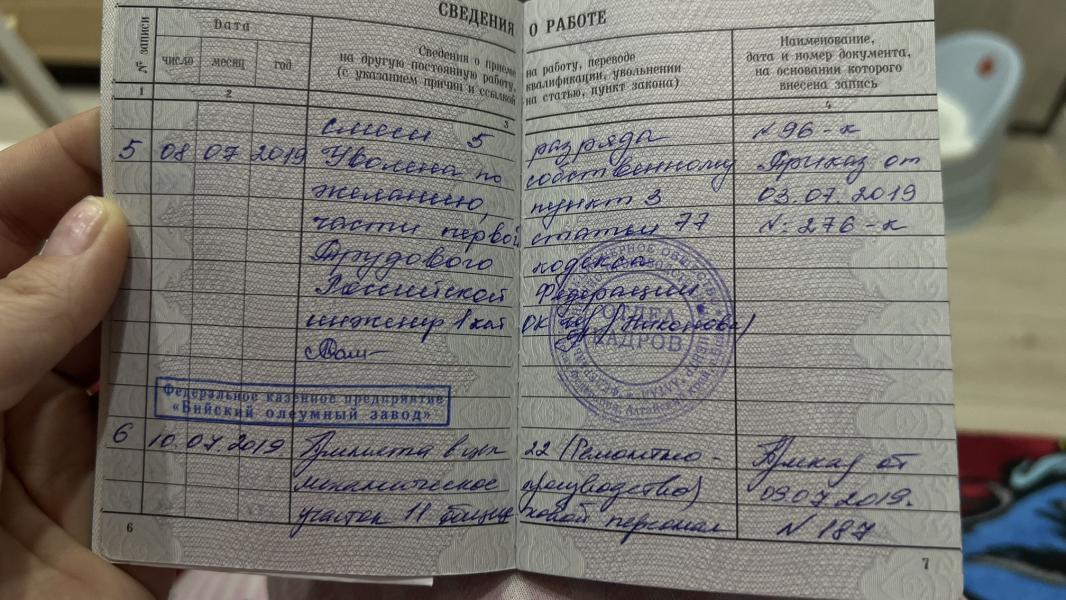 СВЕДЕНИЯ О РАБОТЕ
№ записи
Дата
число месяц год
Сведения о приеме на работу, переводе
на другую постоянную работу, квалификации, увольнении
(с указанием причин и ссылкой на статью, пункт закона)
Наименование,
дата и номер документа,
на основании которого
внесена запись
1 2 3 4
смеси 5 разряда № 96-к
5 08 07 2019 Уволена по собственному Приказ от
желанию, пункт 3 03.07.2019
части первой статьи 77 №: 276-к
Трудового кодекса
Российской Федерации
инженер 1 кат ОК
ОТДЕЛ
КАДРОВ
Федеральное казенное предприятие
«Бийский олеумный завод»
6 10.07.2019 Принята в цех 22 (Ремонтно- Приказ от
механическое производство) 09.07.2019.
участок 11 персонал № 187
6
7